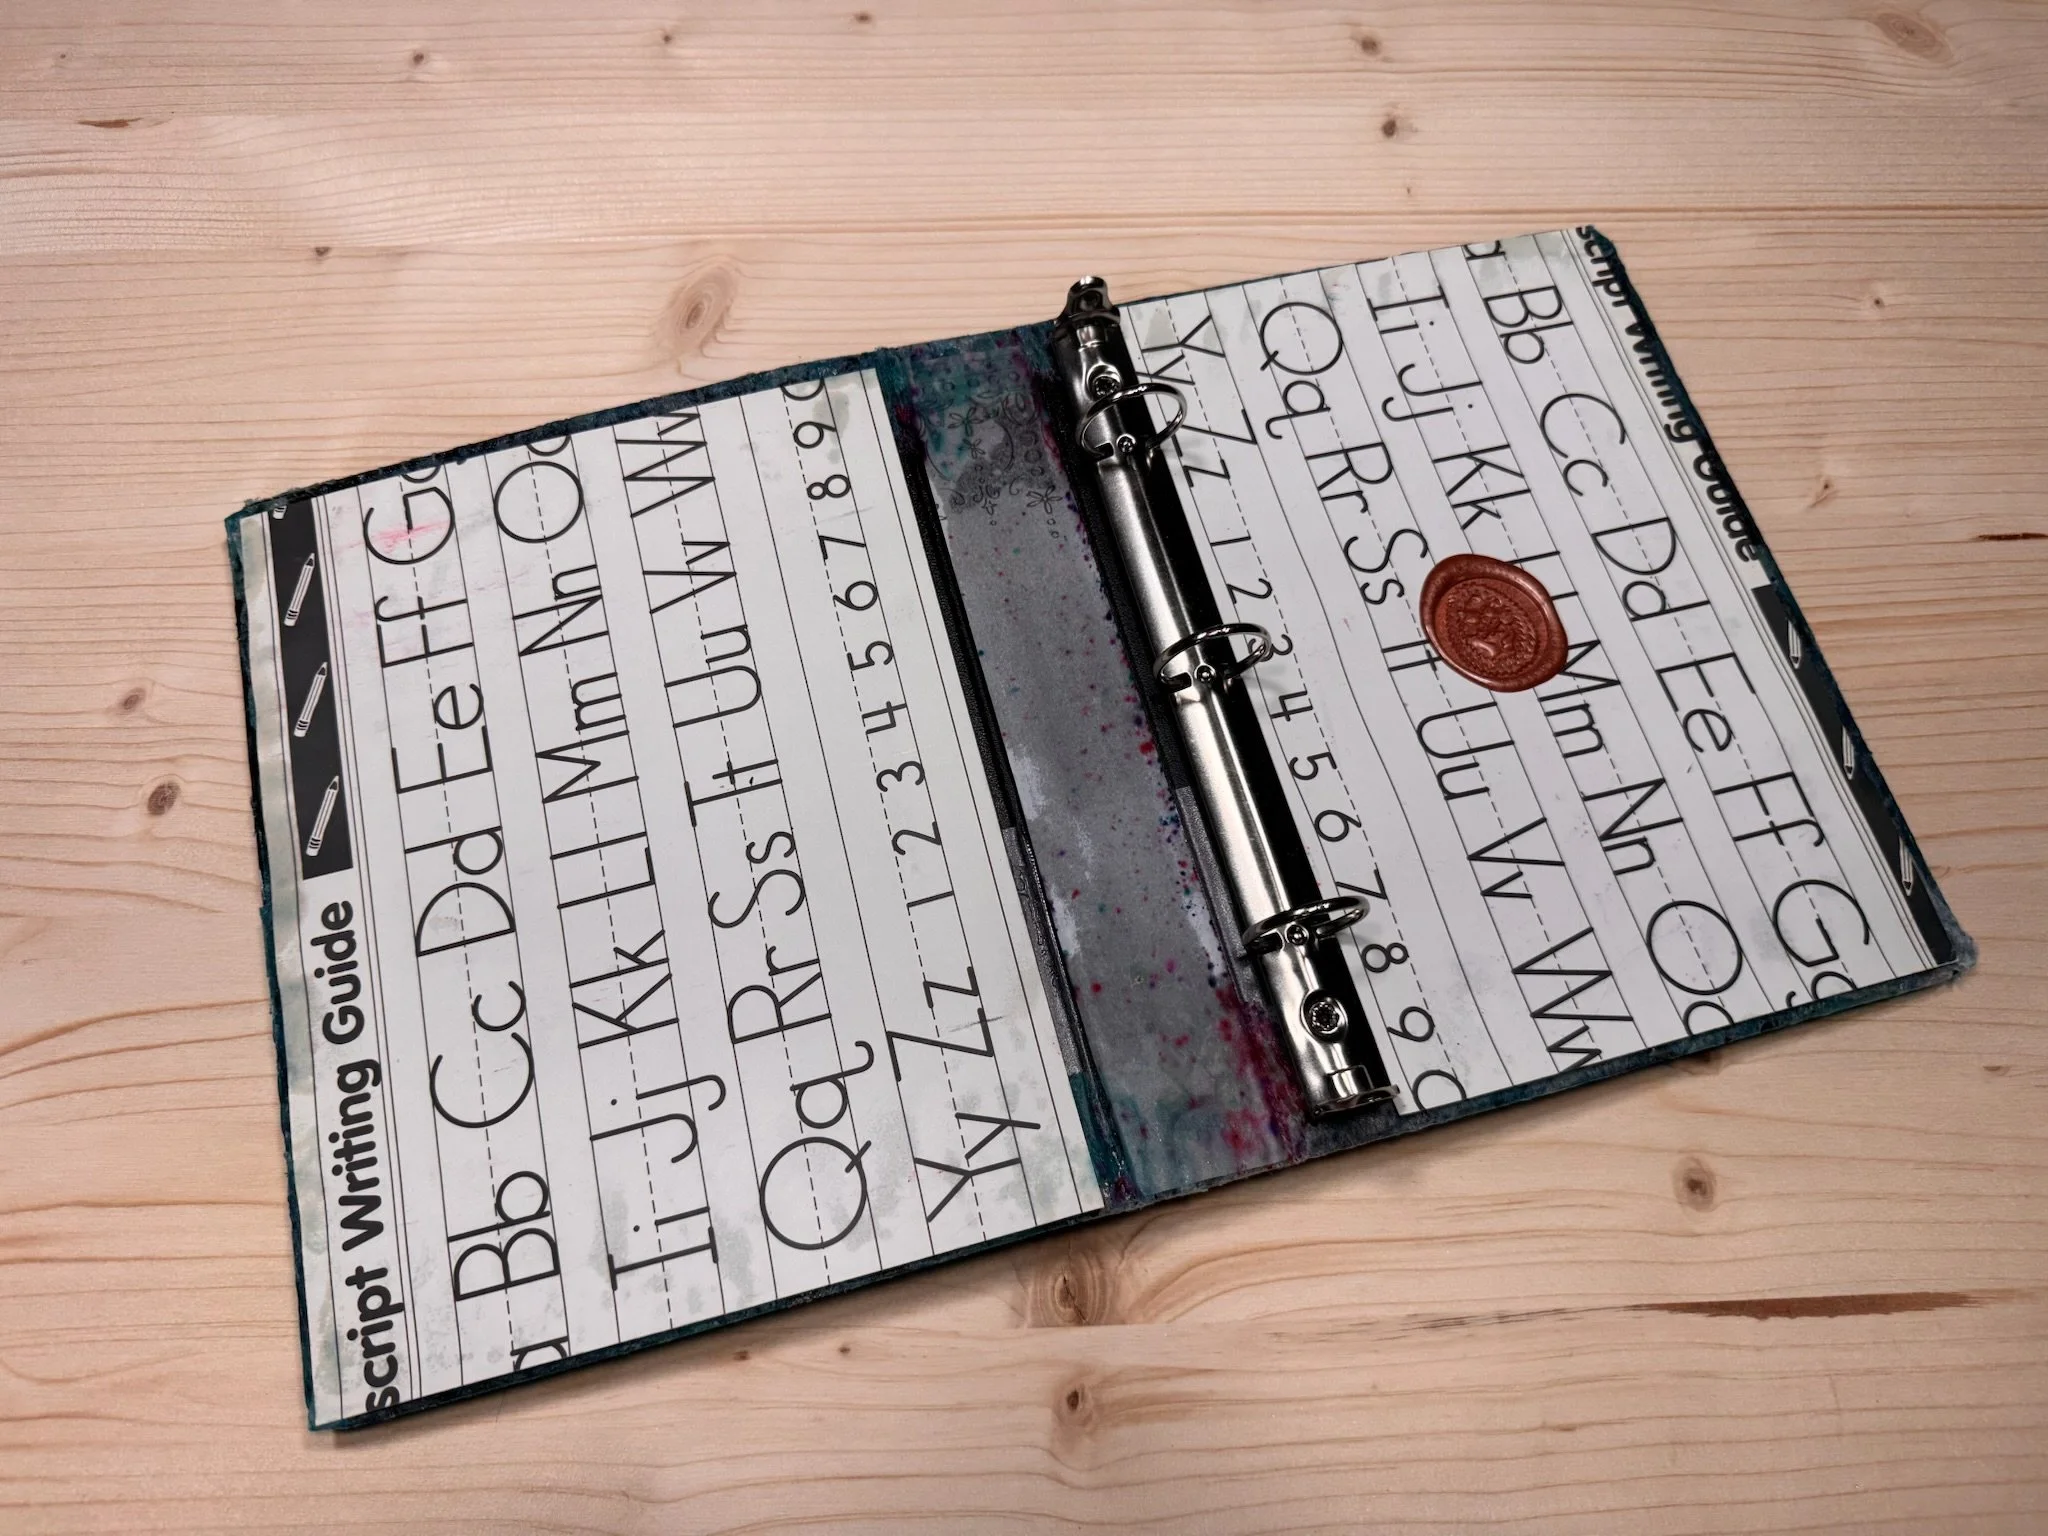 script Writing Guide
a Bb Cc Dd Ee Ff G
Ii Jj Kk Ll Mm Nn O
Qq Rr Ss Tt Uu Vv Ww
Yy Zz 1 2 3 4 5 6 7 8 9
script Writing Guide
a Bb Cc Dd Ee Ff G
Ii Jj Kk Ll Mm Nn O
Qq Rr Ss Tt Uu Vv Ww
Yy Zz 1 2 3 4 5 6 7 8 9